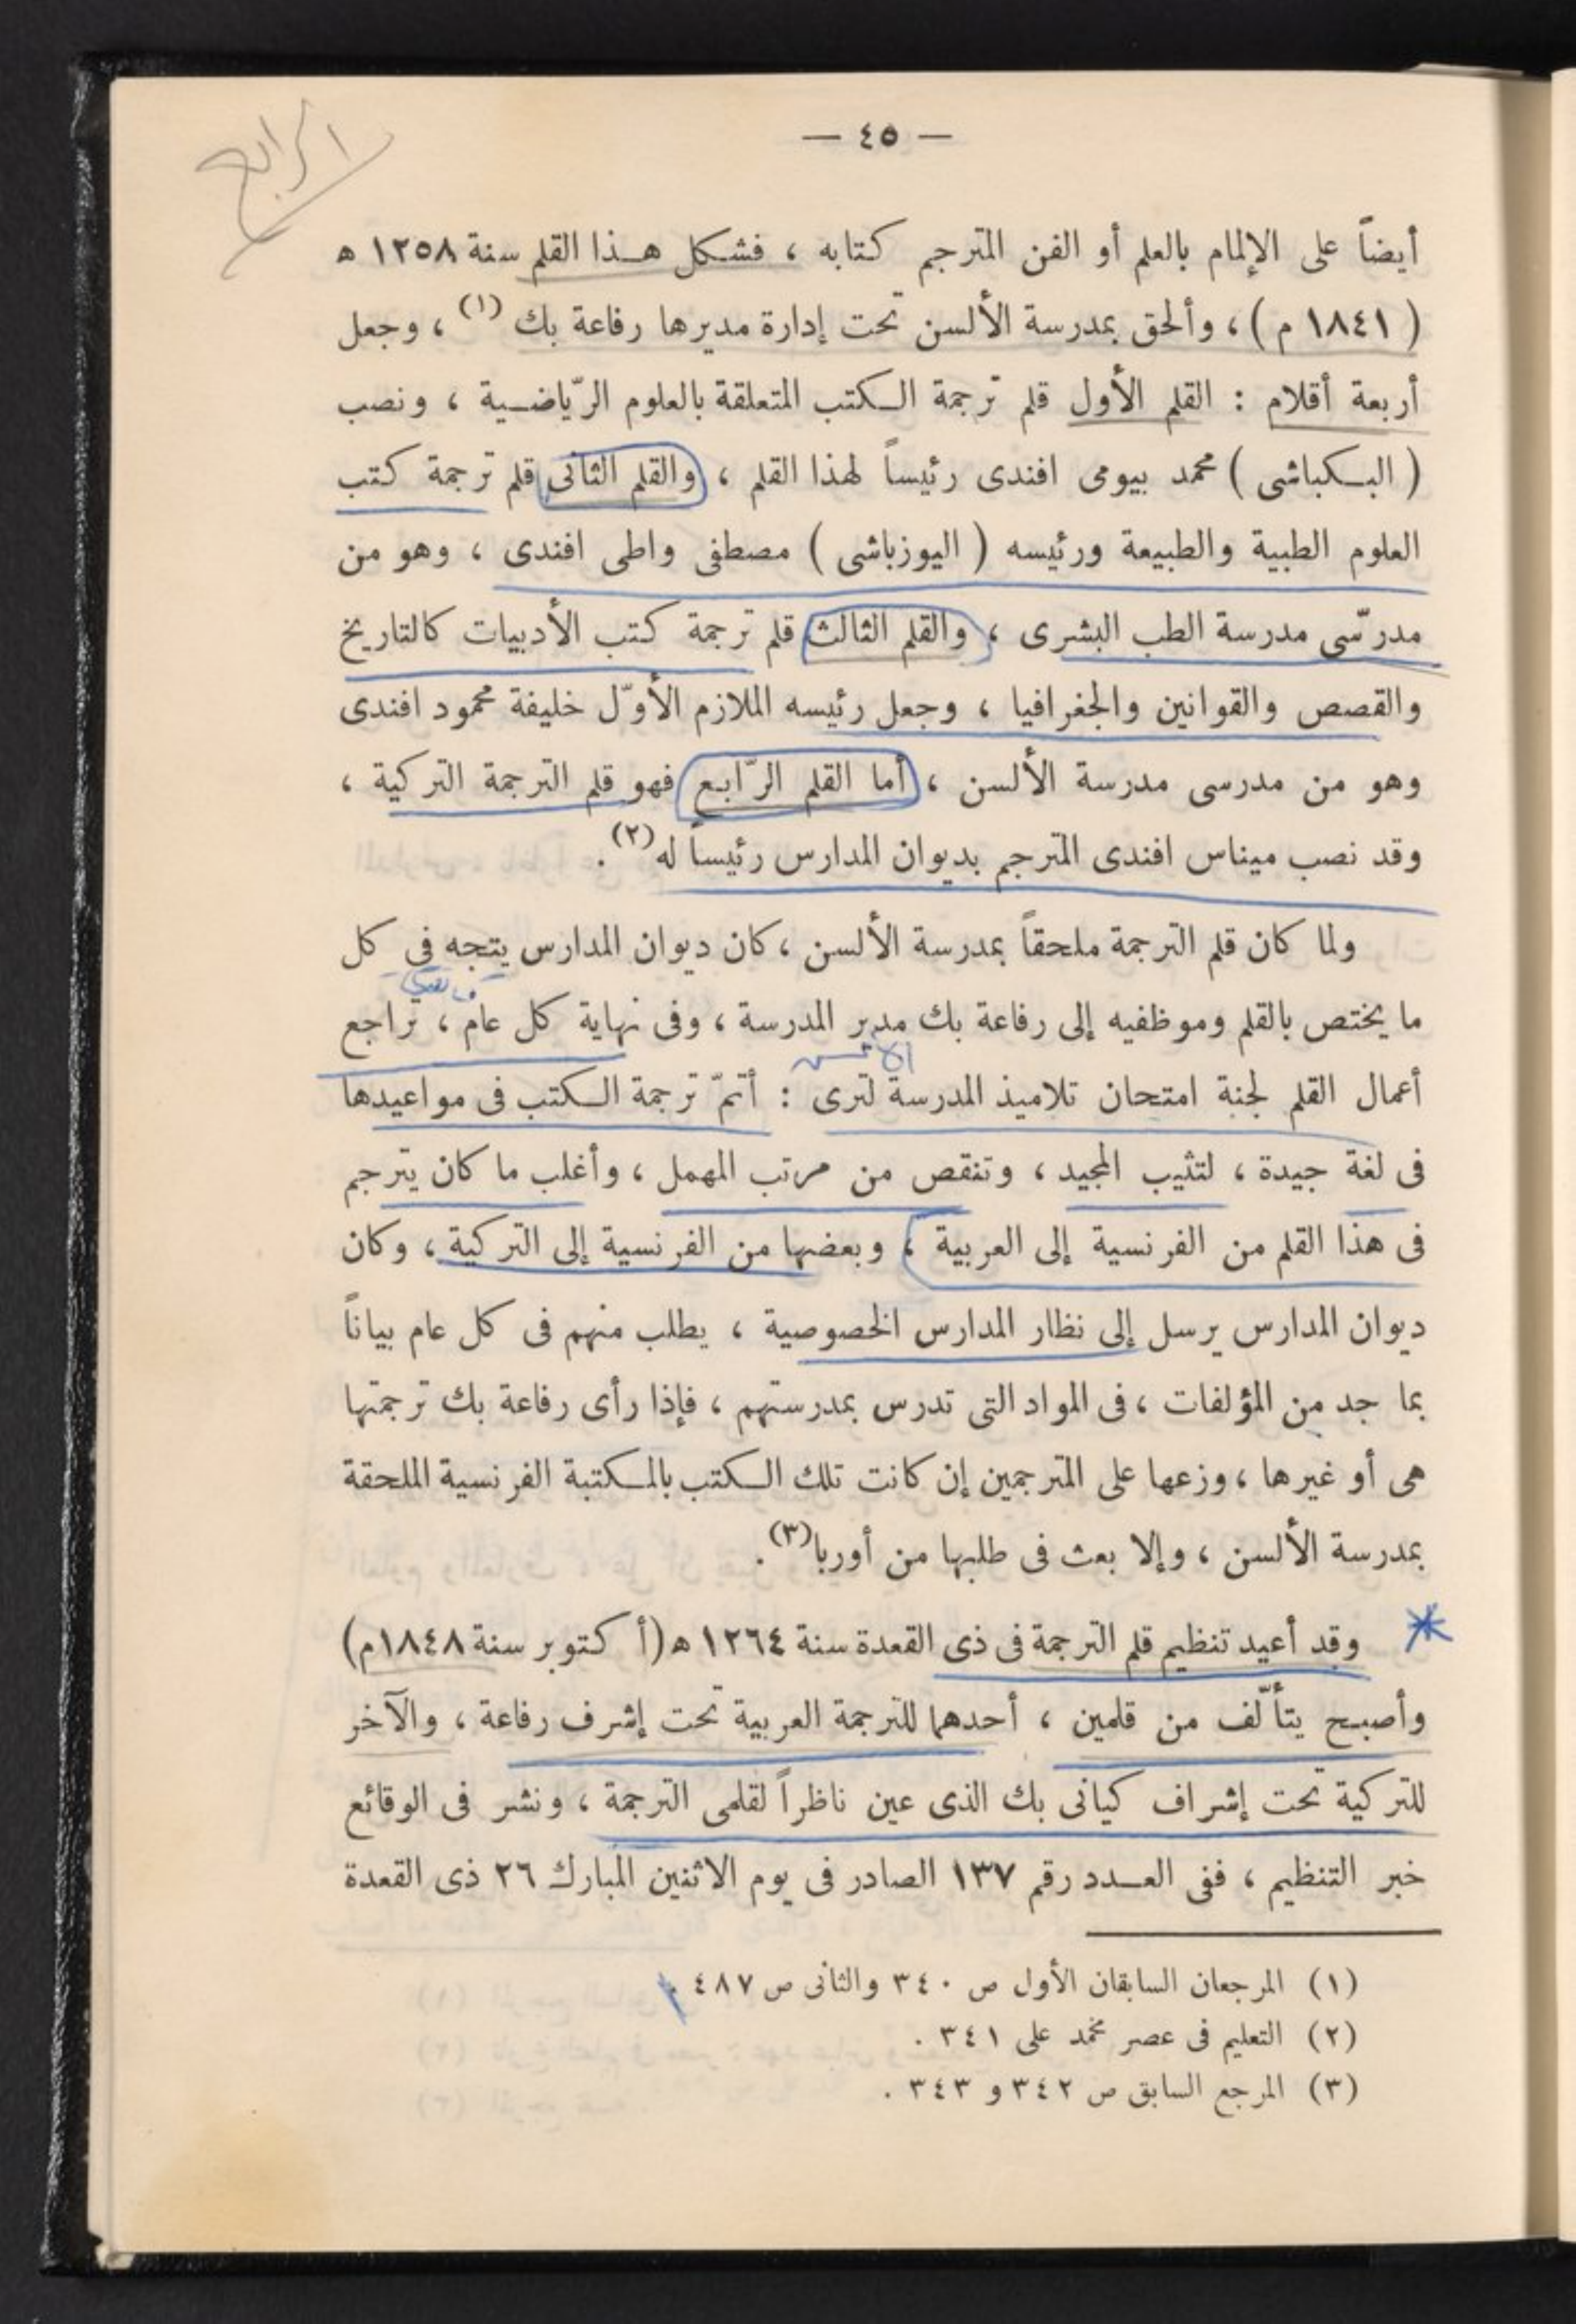 — ٤٥ —
الرابع
أيضاً على الإلمام بالعلم أو الفن المترجم كتابه ، فشكل هـذا القلم سنة ١٢٥٨ ه
( ١٨٤١ م ) ، وألحق بمدرسة الألسن تحت إدارة مديرها رفاعة بك (١) ، وجعل
أربعة أقلام : القلم الأول قلم ترجمة الـكتب المتعلقة بالعلوم الرّياضـية ، ونصب
( البـكباشى ) محمد بيومى افندى رئيساً لهذا القلم ، والقلم الثانى قلم ترجمة كتب
العلوم الطبية والطبيعة ورئيسه ( اليوزباشى ) مصطفى واطى افندى ، وهو من
مدرّسى مدرسة الطب البشرى ، والقلم الثالث قلم ترجمة كتب الأدبيات كالتاريخ
والقصص والقوانين والجغرافيا ، وجعل رئيسه الملازم الأوّل خليفة محمود افندى
وهو من مدرسى مدرسة الألسن ، أما القلم الرّابع فهو قلم الترجمة التركية ،
وقد نصب ميناس افندى المترجم بديوان المدارس رئيساً له (٢) .
ولما كان قلم الترجمة ملحقاً بمدرسة الألسن ، كان ديوان المدارس يتجه فى كل
ما يختص بالقلم وموظفيه إلى رفاعة بك مدير المدرسة ، وفى نهاية كل عام ، تراجع
الألسن
أعمال القلم لجنة امتحان تلاميذ المدرسة لترى : أتمّ ترجمة الـكتب فى مواعيدها
فى لغة جيدة ، لتثيب المجيد ، وتنقص من مرتب المهمل ، وأغلب ما كان يترجم
فى هذا القلم من الفرنسية إلى العربية ، وبعضها من الفرنسية إلى التركية ، وكان
ديوان المدارس يرسل إلى نظار المدارس الخصوصية ، يطلب منهم فى كل عام بياناً
بما جد من المؤلفات ، فى المواد التى تدرس بمدرستهم ، فإذا رأى رفاعة بك ترجمتها
هى أو غيرها ، وزعها على المترجمين إن كانت تلك الـكتب بالمـكتبة الفرنسية الملحقة
بمدرسة الألسن ، وإلا بعث فى طلبها من أوربا (٣) .
وقد أعيد تنظيم قلم الترجمة فى ذى القعدة سنة ١٢٦٤ ه (أ كتوبر سنة ١٨٤٨م)
وأصبـح يتألّف من قلمين ، أحدهما للترجمة العربية تحت إشرف رفاعة ، والآخر
للتركية تحت إشراف كيانى بك الذى عين ناظراً لقلمى الترجمة ، ونشر فى الوقائع
خبر التنظيم ، ففى العـدد رقم ١٣٧ الصادر فى يوم الاثنين المبارك ٢٦ ذى القعدة
(١) المرجعان السابقان الأول ص ٣٤٠ والثانى ص ٤٨٧ .
(٢) التعليم فى عصر محمد على ٣٤١ .
(٣) المرجع السابق ص ٣٤٢ و ٣٤٣ .